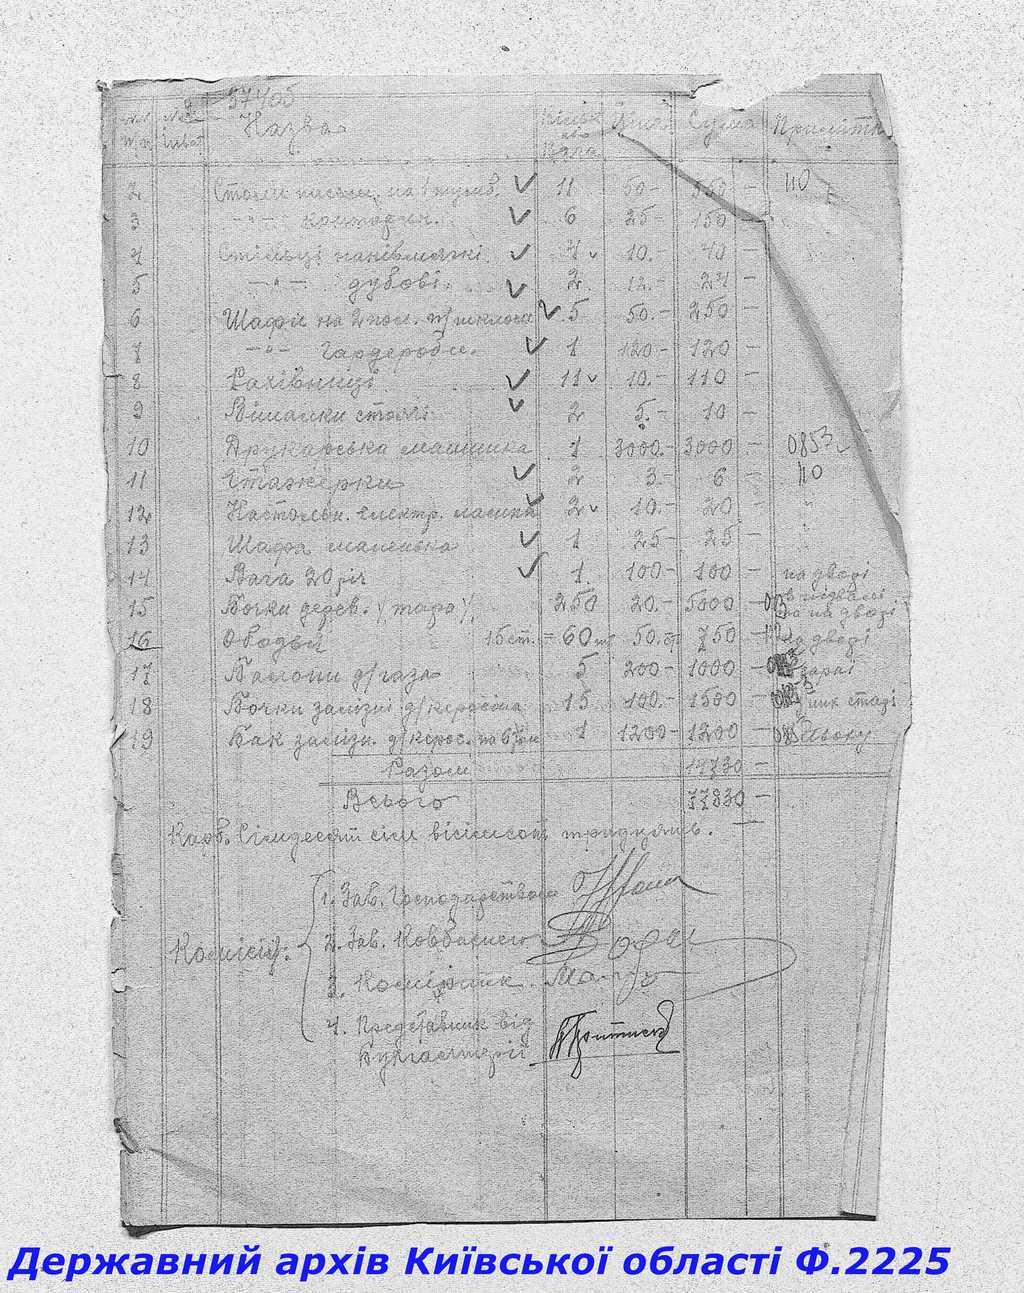 57405
№№ п/п № інвет Назва Кількіс або Вага Ціна Сума Примітк
2 Столи письм. на 1 тумб. 11 50- 550 - 110
3 -"- конторск. 6 25- 150 -
4 Стільці напівмягкі 4 10.- 40 -
5 -"- дубові. 2 12.- 24 -
6 Шафи на 2 пол. 5 50.- 250 -
7 -"- Гардеробн. 1 120- 120 -
8 Рахівниці 11 10.- 110 -
9 Вішалки стоячі 2 5.- 10 -
10 Друкарська машинка 1 3000.- 3000 - 0853
11 Етажерки 2 3.- 6 - 110
12 Настольн. електр. лампи 2 10.- 20 - "
13 Шафа маленька 1 25- 25 - "
14 Вага 20 1 100- 100 - на дворі
15 Бочки дерев. /тара/ 250 20.- 5000 - в підвалі
та на дворі
16 Ободья 15 ст. = 60 50. 750 - на дворі
17 Балони д/газа 5 200- 1000 - сараї
18 Бочки залізні д/керосіна 15 100.- 1500 -
19 Бак залізн. д/керос. на 1 1200- 1200 - льоху
Разом 14730 -
Всього 77830 -
Карб. Сімдесят сім вісімсот тридцять.
Комісія:
1. Зав. Господарством
2. Зав. Ковбаснею
3. Комірник.
4. Представник від
Бухгалтерії
Державний архів Київської області Ф.2225